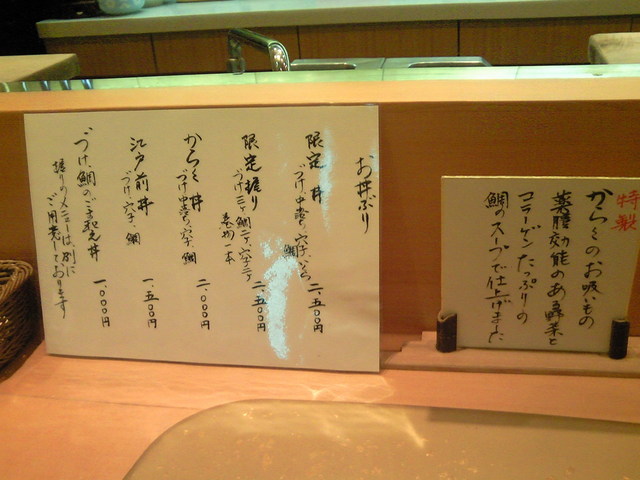 お丼ぶり
限定 丼
づけ、中とろ、穴子、いくら、鯛
二、五〇〇円
限定握り
づけ三ヶ、鯛二ヶ、穴子二ヶ
巻物一本
二、五〇〇円
からく丼
づけ、中とろ、穴子、鯛
二、〇〇〇円
江戸前丼
づけ、穴子、鯛
一、五〇〇円
づけ、鯛のごま和え丼
一、〇〇〇円
握りのメニューは、別に
ご用意しております
特製
からくのお吸いもの
薬膳効能のある野菜と
コラーゲンたっぷりの
鯛のスープで仕上げました